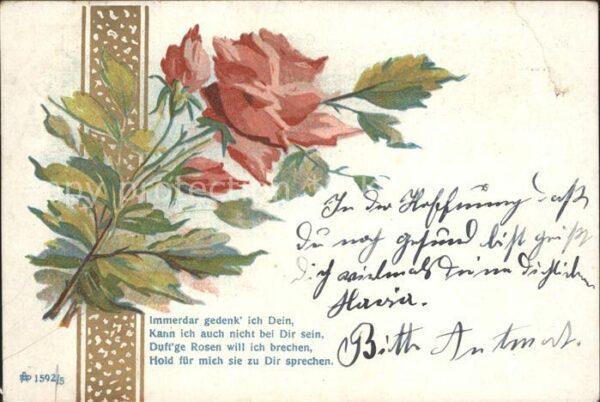 In der Hoffnung daß
Du noch gesund bist grüßt
Dich vielmals Deine
Maria.
Bitte Antwort.
Immerdar gedenk' ich Dein,
Kann ich auch nicht bei Dir sein,
Duft'ge Rosen will ich brechen,
Hold für mich sie zu Dir sprechen.
1592/5